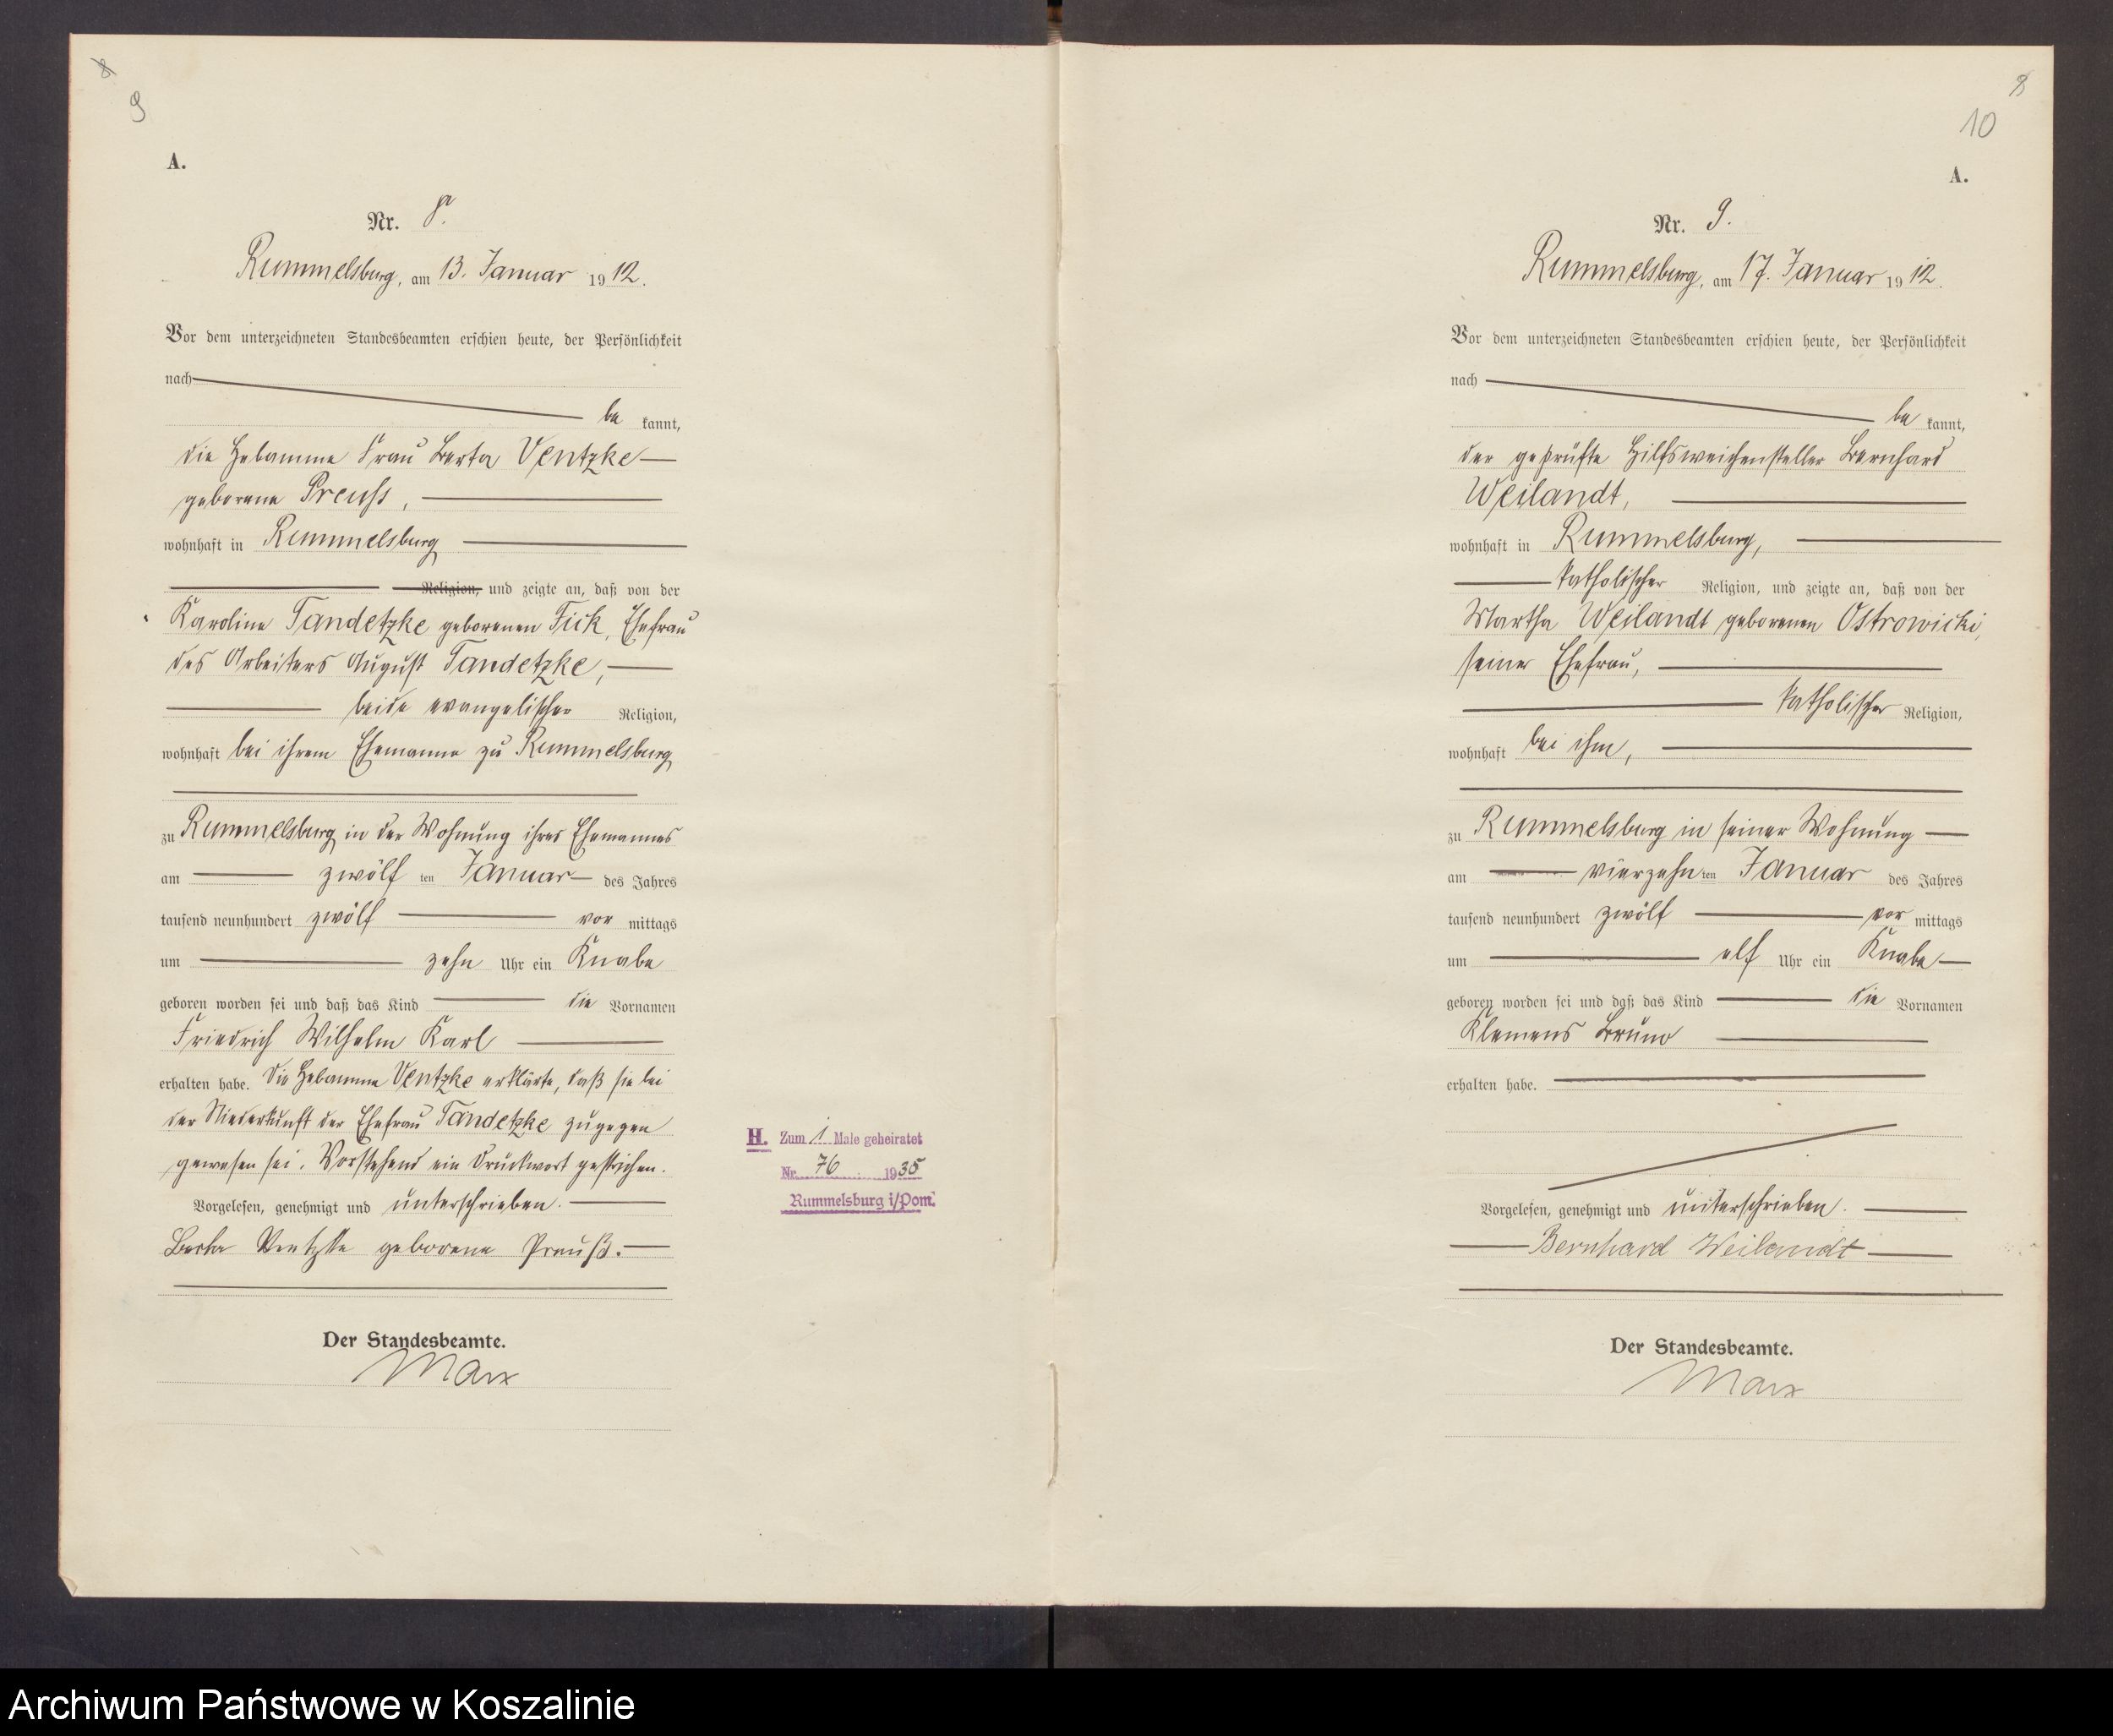 8
9
A.
Nr. 8.
Rummelsburg, am 13. Januar 1912.
Vor dem unterzeichneten Standesbeamten erschien heute, der Persönlichkeit
nach
be kannt,
die Hebamme Frau Berta Ventzke
geborene Preuss,
wohnhaft in Rummelsburg
Religion, und zeigte an, daß von der
Karoline Tandetzke geborenen Fick, Ehefrau
des Arbeiters August Tandetzke,
beide evangelischer Religion,
wohnhaft bei ihrem Ehemanne zu Rummelsburg
zu Rummelsburg in der Wohnung ihres Ehemannes
am zwölf ten Januar des Jahres
tausend neunhundert zwölf vor mittags
um zehn Uhr ein Knabe
geboren worden sei und daß das Kind die Vornamen
Friedrich Wilhelm Karl
erhalten habe. Die Hebamme Ventzke erklärte, daß sie bei
der Niederkunft der Ehefrau Tandetzke zugegen
gewesen sei. Vorstehend ein Druckwort gestrichen.
Vorgelesen, genehmigt und unterschrieben.
Berta Ventzke geborene Preuß.
Der Standesbeamte.
Marx
H. Zum 1 Male geheiratet
Nr. 76 1935
Rummelsburg i/Pom.
8
10
A.
Nr. 9.
Rummelsburg, am 17. Januar 1912.
Vor dem unterzeichneten Standesbeamten erschien heute, der Persönlichkeit
nach
be kannt,
der geprüfte Hilfsweichensteller Bernhard
Weilandt,
wohnhaft in Rummelsburg,
katholischer Religion, und zeigte an, daß von der
Martha Weilandt geborenen Ostrowicki,
seiner Ehefrau,
katholischer Religion,
wohnhaft bei ihm,
zu Rummelsburg in seiner Wohnung
am vierzehn ten Januar des Jahres
tausend neunhundert zwölf vor mittags
um elf Uhr ein Knabe
geboren worden sei und daß das Kind die Vornamen
Klemens Bruno
erhalten habe.
Vorgelesen, genehmigt und unterschrieben.
Bernhard Weilandt
Der Standesbeamte.
Marx
Archiwum Państwowe w Koszalinie